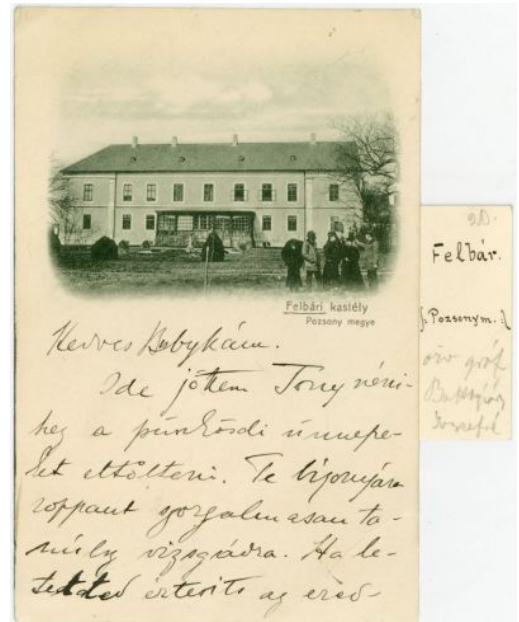 Felbári kastély
Pozsony megye
Kedves Babykám.
Ide jöttem Tony néni-
hez a pünkösdi ünnepe-
ket eltölteni. Te bizonyára
roppant szorgalmasan ta-
núlsz vizsgádra. Ha le-
tetted értesits az ered-
Felbár.
Pozsonym.
özv gróf